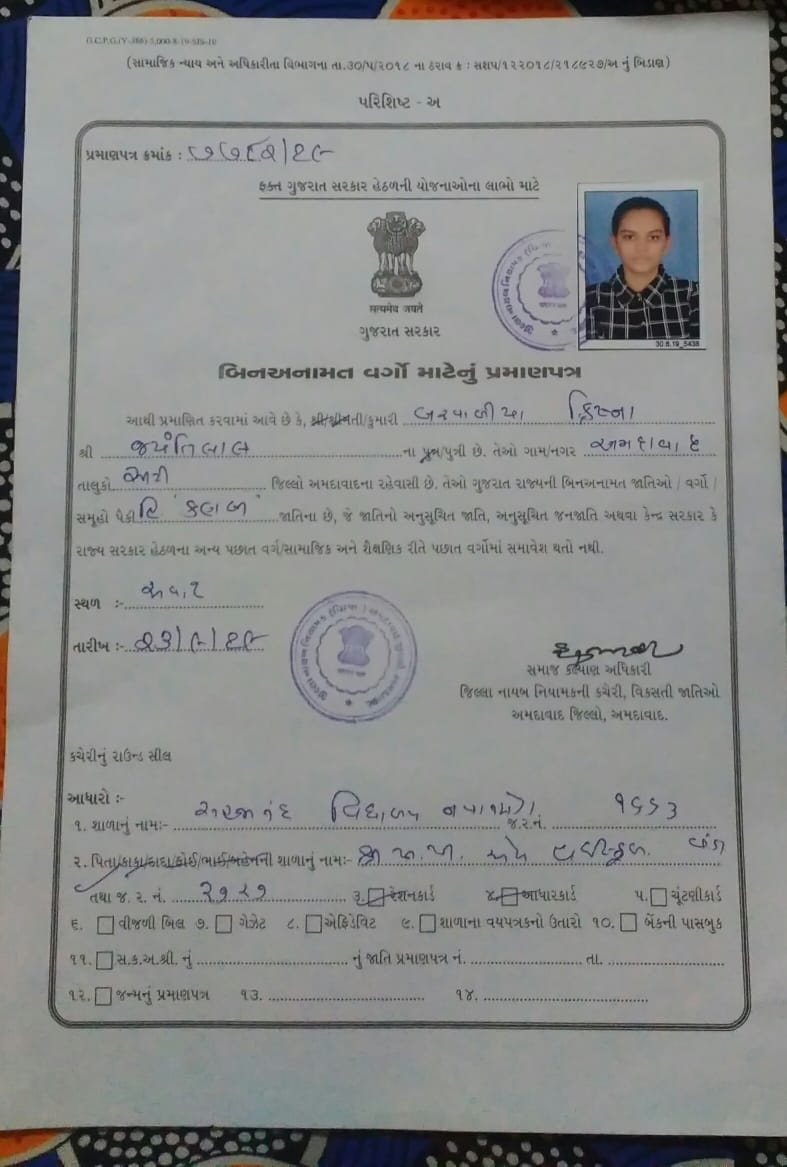 (સામાજિક ન્યાય અને અધિકારીતા વિભાગના તા.૩૦/૫/૨૦૧૮ ના ઠરાવ ક્રઃ સશપ/૧૨૨૦૧૮/૨૧૮૯૨૭/અ નું બિડાણ)
પરિશિષ્ટ - અ
પ્રમાણપત્ર ક્રમાંક :
ફક્ત ગુજરાત સરકાર હેઠળની યોજનાઓના લાભો માટે
सत्यमेव जयते
ગુજરાત સરકાર
30.8.19_5438
બિનઅનામત વર્ગો માટેનું પ્રમાણપત્ર
આથી પ્રમાણિત કરવામાં આવે છે કે, શ્રી/શ્રીમતી/કુમારી ક્રિષ્ના
શ્રી જયંતિલાલ ના પુત્ર/પુત્રી છે. તેઓ ગામ/નગર અમદાવાદ
તાલુકો જિલ્લો અમદાવાદના રહેવાસી છે. તેઓ ગુજરાત રાજ્યની બિનઅનામત જાતિઓ / વર્ગો /
સમુહો પૈકી હિંદુ કણબી જાતિના છે, જે જાતિનો અનુસૂચિત જાતિ, અનુસૂચિત જનજાતિ અથવા કેન્દ્ર સરકાર કે
રાજ્ય સરકાર હેઠળના અન્ય પછાત વર્ગ/સામાજિક અને શૈક્ષણિક રીતે પછાત વર્ગોમાં સમાવેશ થતો નથી.
સ્થળ :-
તારીખ :- ૨૩/૯/૧૯
સમાજ કલ્યાણ અધિકારી
જિલ્લા નાયબ નિયામકની કચેરી, વિકસતી જાતિઓ
અમદાવાદ જિલ્લો, અમદાવાદ.
કચેરીનું રાઉન્ડ સીલ
આધારો :-
૧. શાળાનું નામ:- વિદ્યાલય જ.ર.નં. ૧૬૬૩
૨. પિતા/કાકા/દાદા/ફોઈ/ભાઈ/બહેનની શાળાનું નામ:- શ્રી
તથા જ. ર. નં. ૨૧૨૭ ૩. રેશનકાર્ડ ૪. આધારકાર્ડ ૫. ચૂંટણીકાર્ડ
૬. વીજળી બિલ ૭. ગેઝેટ ૮. એફિડેવિટ ૯. શાળાના વયપત્રકનો ઉતારો ૧૦. બેંકની પાસબુક
૧૧. સ.ક.અ.શ્રી. નું નું જાતિ પ્રમાણપત્ર નં. તા.
૧૨. જન્મનું પ્રમાણપત્ર ૧૩. ૧૪.